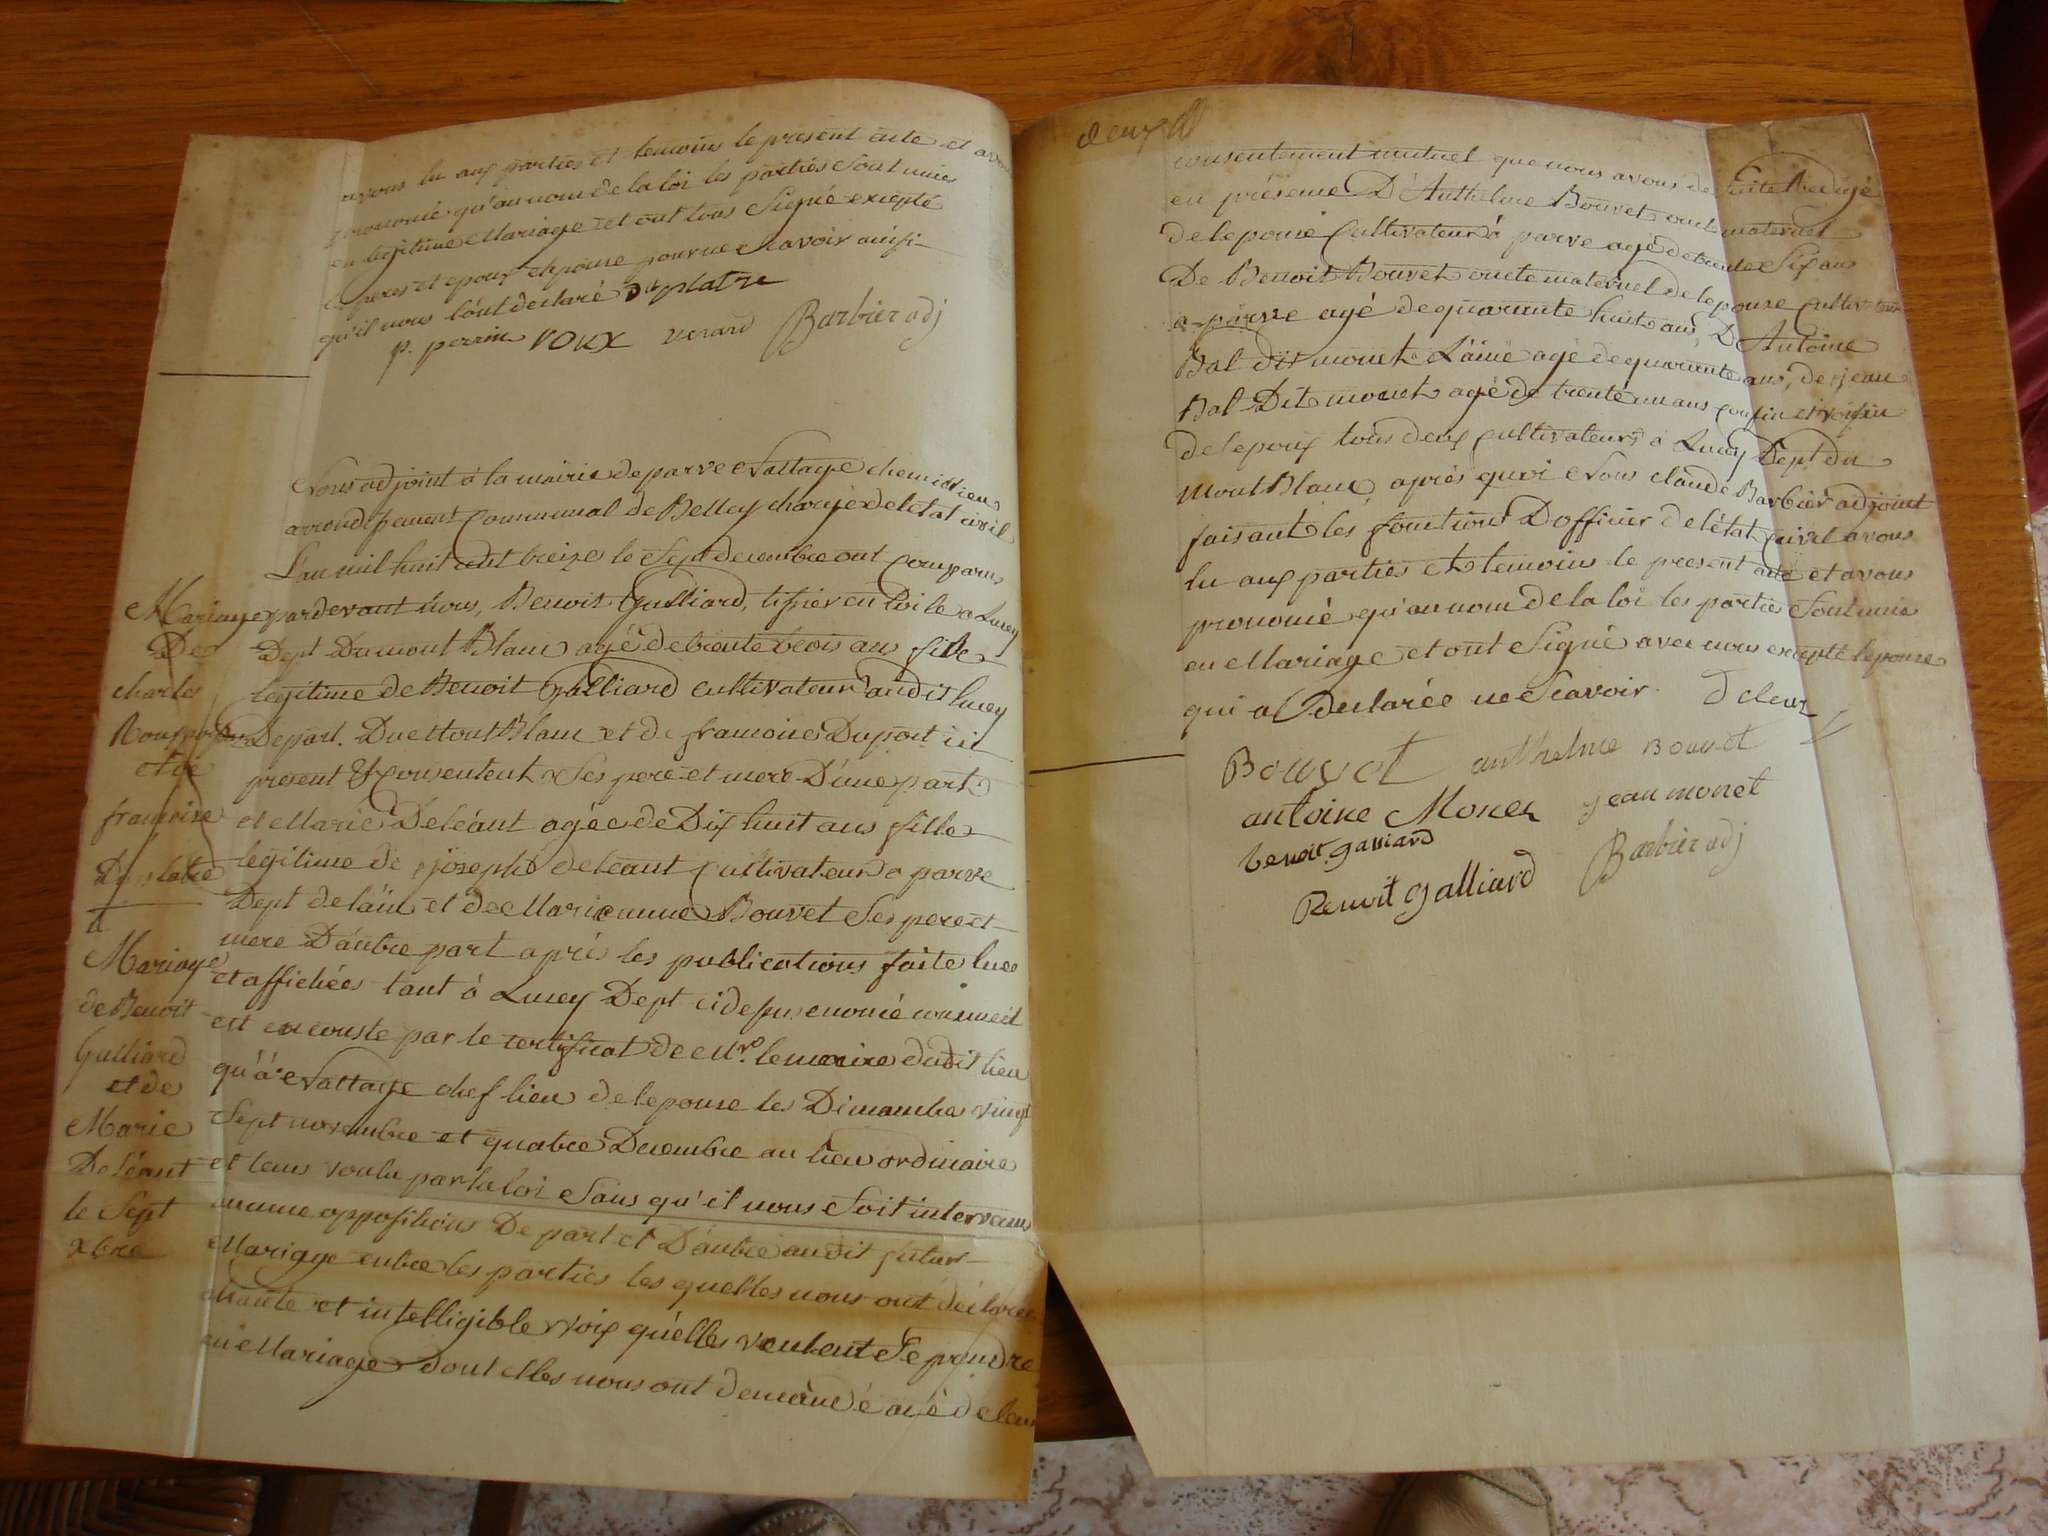 avons lu aux parties et temoins le present acte et avons
prononcé qu'au nom de la loi les parties sont unies
en legitime Mariage et ont tous Signé excepté
peres et epoux et epouse pour ne scavoir ainsi
qu'il nous l'ont declaré Duplatre
p. perrin roux verard Barbier adj
Nous adjoint à la mairie de parve Nattage chemillieu
arrondissement Communal de Belley chargé de l'etat civil
L'an mil huit cent treize le Sept decembre ont comparus
pardevant nous, Benoit Galliard, tissier en toile a Lucey
Dept Du mont Blanc agé de trente trois ans fils
legitime de Benoit Galliard cultivateur audit lucey
Depart. Du Mont Blanc et de francoise Duport ici
present & consentent Ses pere et mere D'une part
et Marie Deléant agée de Dix huit ans fille
legitime de joseph deleant cultivateur a parve
Dept de láin et de Marie anne Bouvet Ses pere et
mere D'autre part aprés les publications faite lues
et affichées tant à Lucey Dept cidessus enoncé comme il
est en conste par le certificat de Mr. le maire dudit lieu
qu'á Nattage chef lieu de lepouse les Dimanches vingt
Sept novembre et quatre Decembre au lieu ordinaire
et tems voulu par la loi Sans qu'il nous Soit intervenus
aucune oppositions De part et D'autre audit futur
Mariage entre les parties les quelles nous ont déclarées
a haute et intelligible voix qu'elles veulent Se prendre
en Mariage dont elles nous ont demandé acte de leur
Mariage
Des
charles
et de
francoise
Duplatre
Mariage
de Benoit
Galliard
et de
Marie
Deléant
le Sept
xbre
deux
consentement mutuel que nous avons de suite Redigé
en présence D'Anthelme Bouvet oncle maternel
de lepouse Cultivateur á parve agé de trente Six ans
De Benoit Bouvet oncle maternel de lepouse cultivateur
a parve agé de quarante huit ans, D'Antoine
Bal dit monet L'ainé agé de quarante ans, de jean
Bal Dit monet agé de trente un ans cousin et voisin
de lepoux tous deux cultivateurs a Lucey Dept du
Mont Blanc, aprés quoi Nous claude Barbier adjoint
faisant les fonctions D'officier de l'état civil avons
lu aux parties et temoins le present acte et avons
prononcé qu'au nom de la loi les partie Sont unies
en Mariage et ont Signé avec nous excepté lepouse
qui a declarée ne Scavoir. Deleant
Bouvet anthelme Bouvet
antoine Monet jean monet
benoit galliard
Benoit galliard Barbier adj